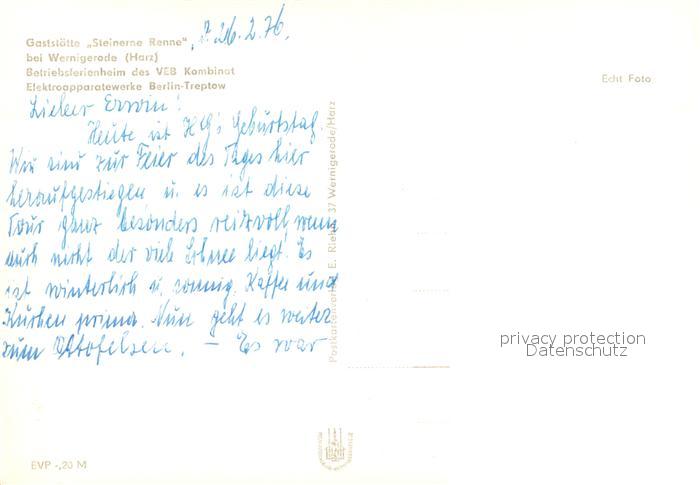 Gaststätte „Steinerne Renne"
bei Wernigerode (Harz)
Betriebsferienheim des VEB Kombinat
Elektroapparatewerke Berlin-Treptow
26.2.76.
Lieber Erwin!
Heute ist HG's Geburtstag.
Wir sind zur Feier des Tages hier
heraufgestiegen u. es ist diese
Tour ganz besonders reizvoll, wenn
auch nicht der viele Schnee liegt. Es
ist winterlich u. sonnig. Kaffee und
Kuchen prima. Nun geht es weiter
zum Ottofelsen. – Es war
Echt Foto
37 Wernigerode/Harz
privacy protection
Datenschutz
EVP -,20 M